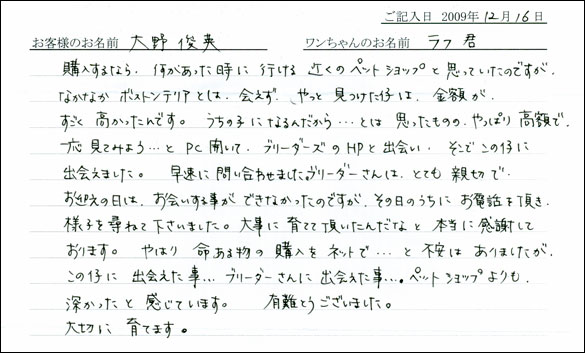 ご記入日 2009年12月16日
お客様のお名前 大野 俊英 ワンちゃんのお名前 ラフ君
購入するなら、何かあった時に行ける近くのペットショップと思っていたのですが、
なかなかボストンテリアとは、会えず、やっと見つけた仔は、金額が、
すごく高かったんです。うちの子になるんだから…とは思ったものの、やっぱり高額で、
一応見てみよう…とPC開いて、ブリーダーズのHPと出会い、そこでこの仔に
出会えました。早速に問い合わせました。ブリーダーさんは、とても親切で
お迎えの日は、お会いする事ができなかったのですが、その日のうちにお電話を頂き、
様子を尋ねて下さいました。大事に育てて頂いたんだなと本当に感謝して
おります。やはり命ある物の購入をネットで…と不安はありましたが、
この仔に出会えた事…ブリーダーさんに出会えた事…。ペットショップよりも、
深かったと感じています。有難とうございました。
大切に育てます。